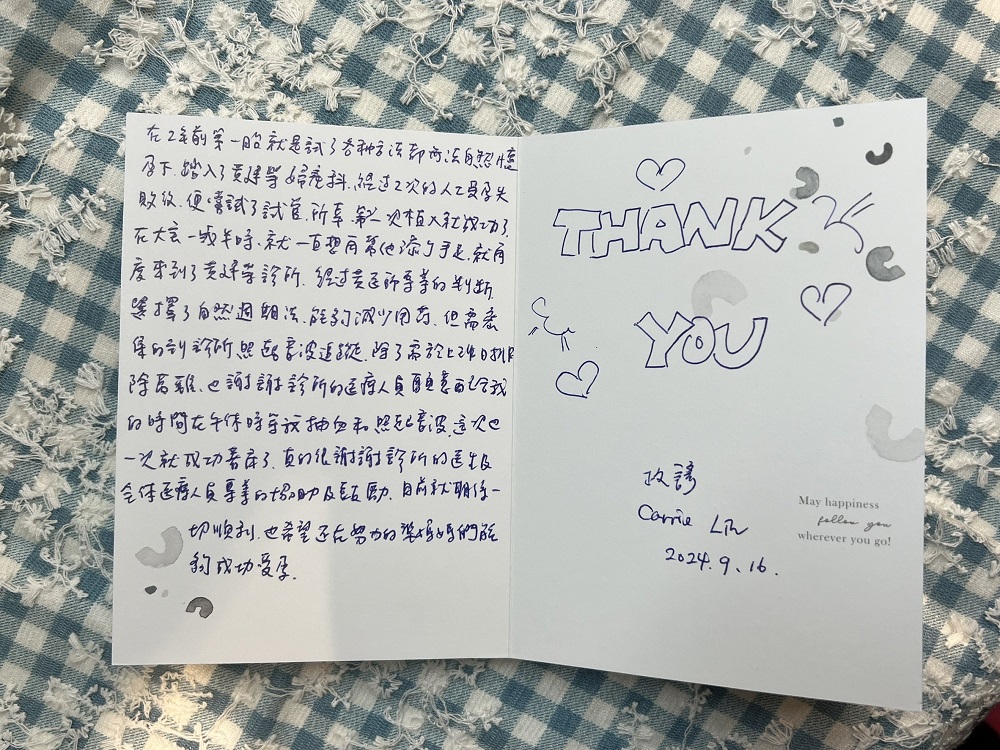 在2年前第一胎就是試了各種方法卻無法自然懷
孕下、踏入了黃建榮婦產科、經過2次的人工受孕失
敗後、便嘗試了試管、所幸、第一次植入就成功了、
在大 一歲半時、就一直想再幫他添個手足、就再
度來到了黃建榮診所、經過黃 所專業的判斷
選擇了自然週期法、能夠減少用藥、但需密
集的到診所照超音波追蹤、除了需於上班日排
除萬難、也謝謝診所的醫療人員願意配合我
的時間在午休時等 抽血和照超音波、這次也
一次就成功著床了、真的很謝謝診所的醫生及
全体醫療人員專業的協助及鼓勵、目前就期待一
切順利、也希望還在努力的準媽媽們能
夠成功受孕、
THANK
YOU
政 
Carrie Lin
2024.9.16.
May happiness
follow you
wherever you go!